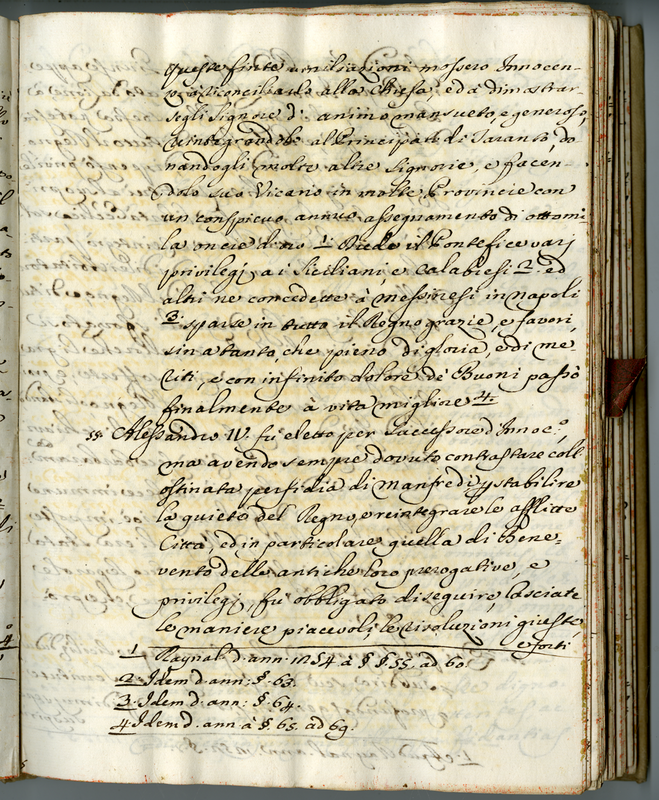 queste finte umiliazioni mossero Innocen-
zo a riconciliarlo alla Chiesa, ed a dimostrar
segli Signore di animo mansueto, e generoso,
reintegrandolo al Principato di Taranto, do
nandogli molte altre Signorie, e facen-
dolo suo Vicario in molte Provincie con
un conspicuo annuo assegnamento di ottomi-
la oncie d'oro 1. Diede il Pontefice varj
privilegj a i Siciliani, e Calabresi 2. ed
altri ne concedette à Messinesi in Napoli
3. sparse in tutto il Regno grazie, e favori,
sin a tanto, che pieno di gloria, e di me
riti, e con infinito dolore de Buoni passò
finalmente à vita migliore 4.
55 Alessandro IV. fù eletto per Successore d'Innoc.o,
ma avendo sempre dovuto contrastare coll
ostinata perfidia di Manfredi p stabilire
la quiete del Regno, e reintegrare le afflitte
Città, ed in particolare quella di Bene-
vento delle antiche loro prerogative, e
privilegj, fù obbligato di seguire, lasciate
le maniere piacevoli le risoluzioni giuste,
e forti
1 Raynal. d. ann. 1254 à § §. 55. ad 60.
2. Idem d. ann: §. 63.
3. Idem d. ann: §. 64.
4 Idem d. ann à §. 65. ad 69.